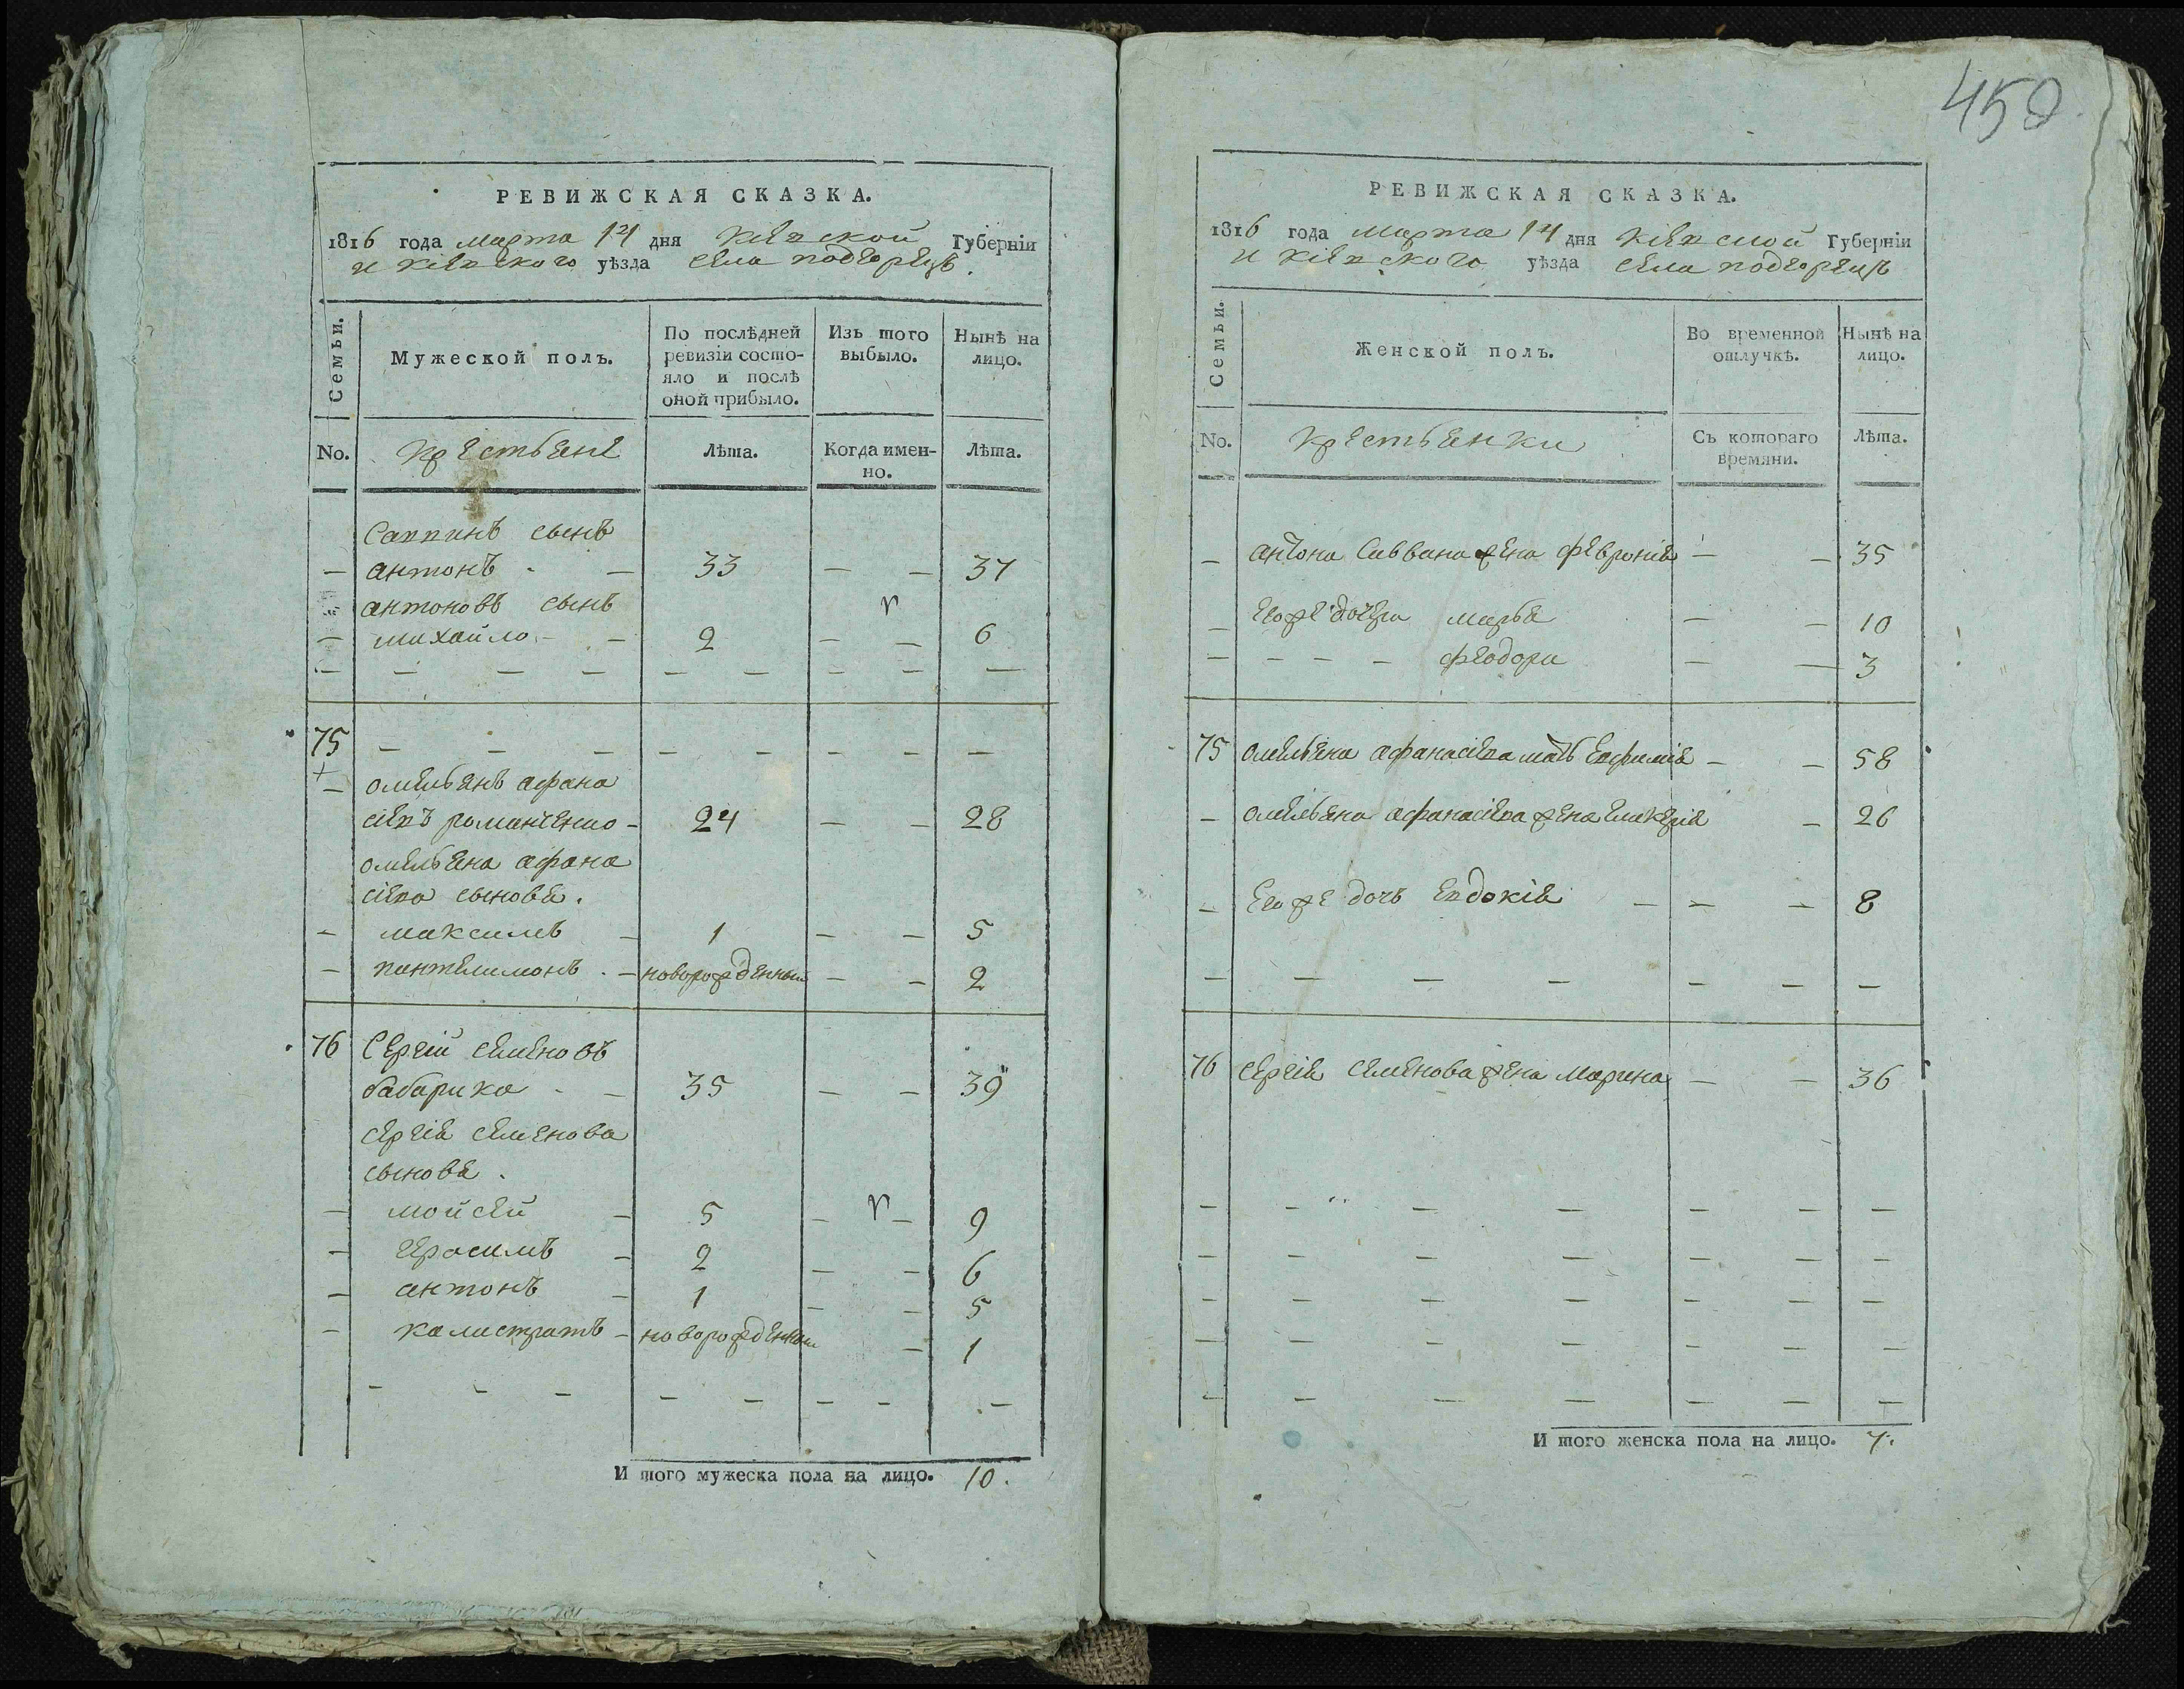 450
РЕВИЖСКАЯ СКАЗКА.
1816 года марта 14 дня Кіевской Губерніи
и Кіевского уѣзда села подгорецъ.
Семьи.
Мужеской полъ.
По послѣдней ревизіи состояло и послѣ оной прибыло.
Изъ того выбыло.
Нынѣ на лицо.
No.
Крестьяне
Лѣта.
Когда именно.
Лѣта.
Саввинъ сынъ
— антонъ — 33 — — 37
антоновъ сынъ
— михайло — 2 — — 6
— — — — — — — — —
75 — — — — — — — —
— омельянъ афана
сіевъ романченко — 24 — — 28
омельяна афана
сіева сыновья.
— максимъ — 1 — — 5
— пантелимонъ — новорожденный — — 2
76 Сергій семеновъ
бабарика — 35 — — 39
сергія семенова
сыновья.
— мойсей — 5 — — 9
— герасимъ — 2 — — 6
— антонъ — 1 — — 5
— калистратъ — новорожденный — 1
— — — — — — — —
И того мужеска пола на лицо. 10.
РЕВИЖСКАЯ СКАЗКА.
1816 года марта 14 дня Кіевской Губерніи
и Кіевского уѣзда села подгорецъ
Семьи.
Женской полъ.
Во временной отлучкѣ.
Нынѣ на лицо.
No.
Крестьянки
Съ котораго времяни.
Лѣта.
— антона Саввина жена февронія — — 35
— его же дочери марья — — 10
— — — — феодора — — 3
75 омельяна афанасіева мать Евфимія — — 58
— омельяна афанасіева жена гликерія — 26
— Его же дочь Евдокія — — — 8
— — — — — — —
76 сергія семенова жена марина — — 36
— — — — — — —
— — — — — — —
— — — — — — —
— — — — — — —
— — — — — — —
И того женска пола на лицо. 7.